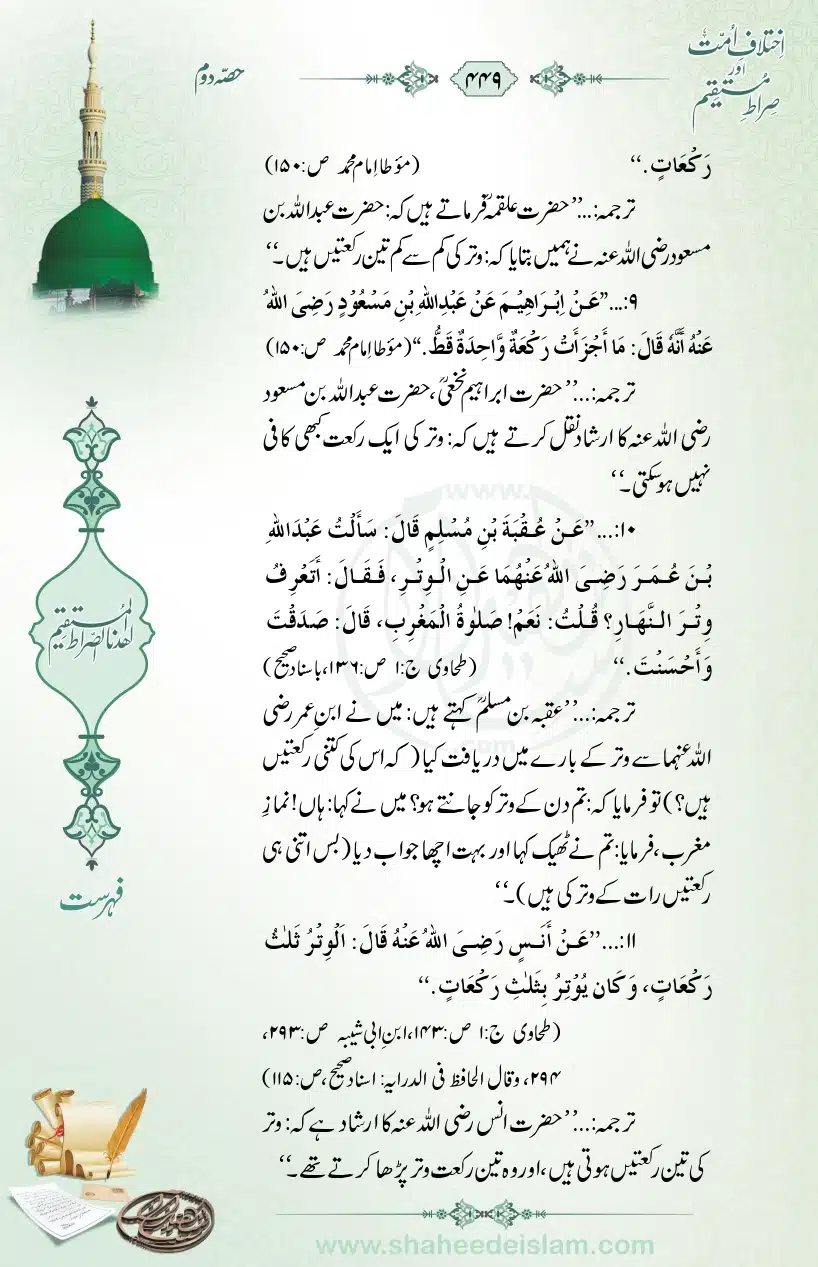 اِختلافِ اُمت
اور
صراطِ مستقیم
۴۴۹
حصہ دوم
رَکْعَاتٍ.‘‘ (مؤطا امام محمد ص:۱۵۰)
ترجمہ:...’’حضرت علقمہؒ فرماتے ہیں کہ: حضرت عبداللہ بن
مسعود رضی اللہ عنہ نے ہمیں بتایا کہ: وتر کی کم سے کم تین رکعتیں ہیں۔‘‘
۹:...’’عَنْ اِبْرَاھِیْمَ عَنْ عَبْدِاللہِ بْنِ مَسْعُوْدٍ رَضِیَ اللہُ
عَنْہُ أَنَّہٗ قَالَ: مَا أَجْزَأَتْ رَکْعَۃٌ وَّاحِدَۃٌ قَطُّ.‘‘ (مؤطا امام محمد ص:۱۵۰)
ترجمہ:...’’حضرت ابراہیم نخعیؒ، حضرت عبداللہ بن مسعود
رضی اللہ عنہ کا ارشاد نقل کرتے ہیں کہ: وتر کی ایک رکعت کبھی کافی
نہیں ہوسکتی۔‘‘
۱۰:...’’عَنْ عُقْبَۃَ بْنِ مُسْلِمٍ قَالَ: سَأَلْتُ عَبْدَاللہِ
بْنَ عُمَرَ رَضِیَ اللہُ عَنْھُمَا عَنِ الْوِتْرِ، فَقَالَ: أَتَعْرِفُ
وِتْرَ النَّھَارِ؟ قُلْتُ: نَعَمْ! صَلٰوۃُ الْمَغْرِبِ، قَالَ: صَدَقْتَ
وَأَحْسَنْتَ.‘‘ (طحاوی ج:۱ ص:۱۳۶، باسناد صحیح)
ترجمہ:...’’عقبہ بن مسلمؒ کہتے ہیں: میں نے ابنِ عمر رضی
اللہ عنہما سے وتر کے بارے میں دریافت کیا (کہ اس کی کتنی رکعتیں
ہیں؟) تو فرمایا کہ: تم دن کے وتر کو جانتے ہو؟ میں نے کہا: ہاں! نمازِ
مغرب، فرمایا: تم نے ٹھیک کہا اور بہت اچھا جواب دیا (بس اتنی ہی
رکعتیں رات کے وتر کی ہیں)۔‘‘
۱۱:...’’عَنْ أَنَسٍ رَضِیَ اللہُ عَنْہُ قَالَ: اَلْوِتْرُ ثَلٰثُ
رَکْعَاتٍ، وَکَانَ یُوْتِرُ بِثَلٰثِ رَکْعَاتٍ.‘‘
(طحاوی ج:۱ ص:۱۴۳، ابنِ ابی شیبہ ص:۲۹۳،
۲۹۴، وقال الحافظ فی الدرایہ: اسناد صحیح، ص:۱۱۵)
ترجمہ:...’’حضرت انس رضی اللہ عنہ کا ارشاد ہے کہ: وتر
کی تین رکعتیں ہوتی ہیں، اور وہ تین رکعت وتر پڑھا کرتے تھے۔‘‘
اھدنا الصراط المستقیم
فہرست
www.shaheedeislam.com